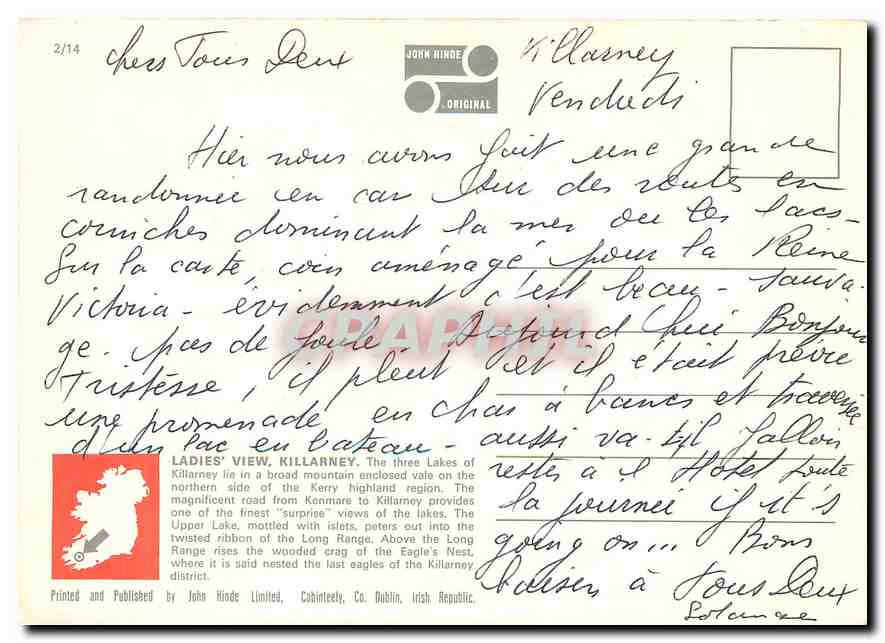 2/14
chers Tous Deux
JOHN HINDE
ORIGINAL
Killarney
Vendredi
Hier nous avons fait une grande
randonnée en car sur des routes en
corniches dominant la mer ou les lacs -
Sur la carte, coin aménagé pour la Reine
Victoria - évidemment c'est beau - sauva-
ge. pas de foule. Aujourd'hui Bonjour
Tristesse, il pleut et il était prévu
une promenade en char à bancs et traversée
d'un lac en bateau - aussi va-t-il falloir
rester à l'Hotel toute
la journée if it's
going on... Bons
baisers à Tous Deux
Solange
LADIES' VIEW, KILLARNEY. The three Lakes of
Killarney lie in a broad mountain enclosed vale on the
northern side of the Kerry highland region. The
magnificent road from Kenmare to Killarney provides
one of the finest "surprise" views of the lakes. The
Upper Lake, mottled with islets, peters out into the
twisted ribbon of the Long Range. Above the Long
Range rises the wooded crag of the Eagle's Nest,
where it is said nested the last eagles of the Killarney
district.
Printed and Published by John Hinde Limited, Cabinteely, Co. Dublin, Irish Republic.